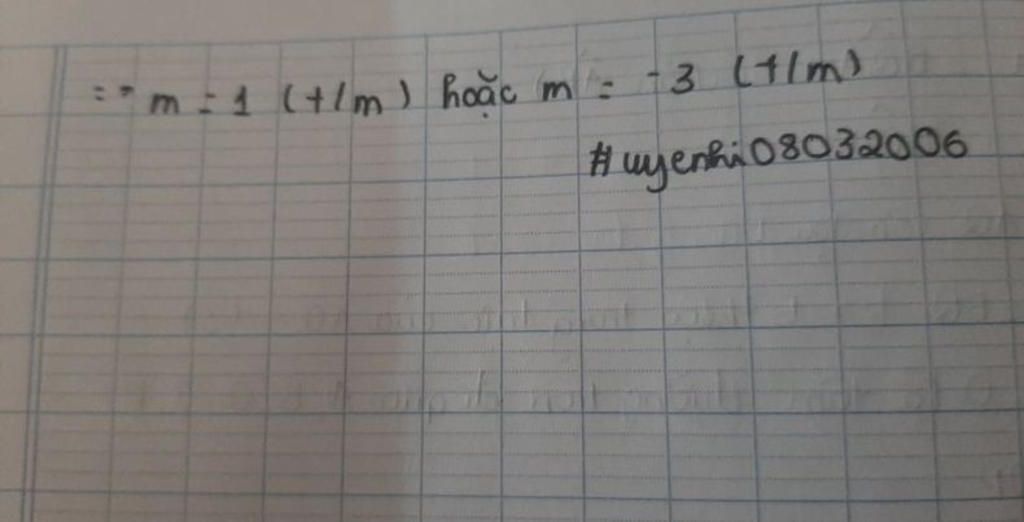 => m = 1 (t/m) hoặc m = -3 (t/m)
#uyenhi08032006